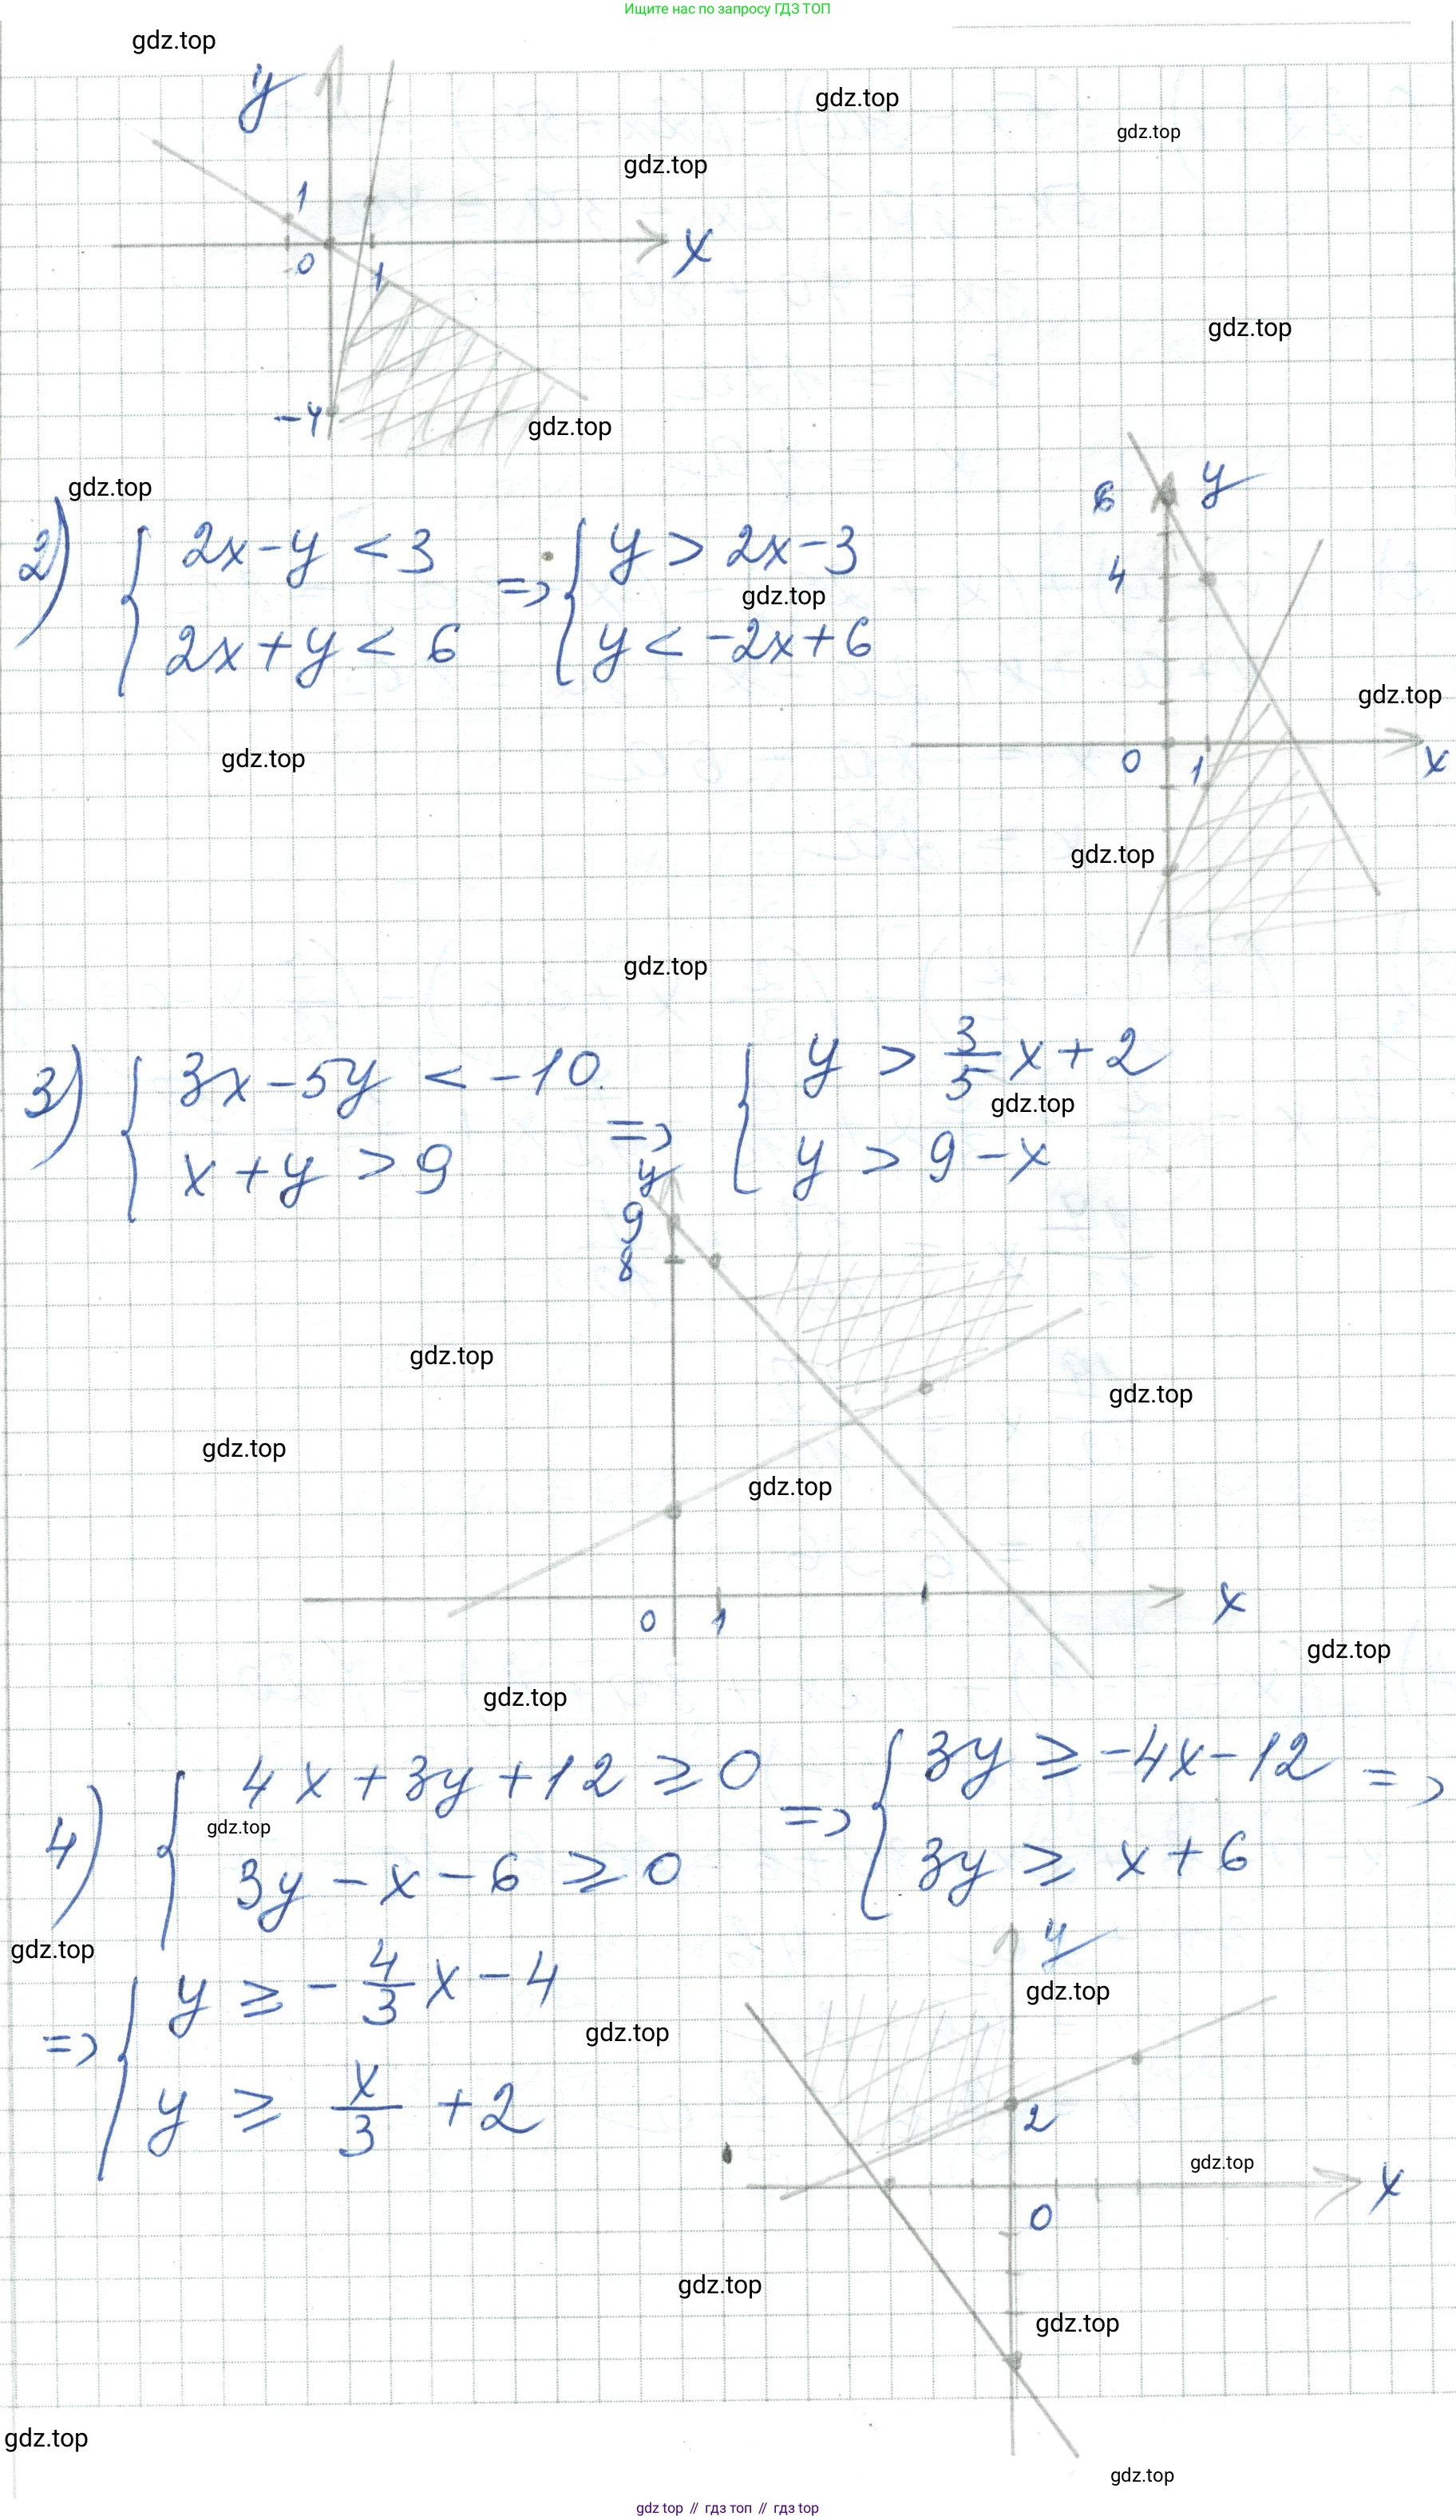 Ищите нас по запросу ГДЗ ТОП
gdz.top
gdz.top
gdz.top
gdz.top
y
1
0
1
x
gdz.top
-4
gdz.top
gdz.top
6
y
4
2) { 2x-y < 3 => { y > 2x-3
gdz.top
2x+y < 6 y < -2x+6
gdz.top
gdz.top
0 1 x
gdz.top
gdz.top
3) { 3x-5y < -10. => { y > 3/5 x + 2
gdz.top
x+y > 9 y > 9-x
y
9
8
gdz.top
gdz.top
gdz.top
gdz.top
0 1 x
gdz.top
gdz.top
4) { 4x+3y+12 ≥ 0 => { 3y ≥ -4x-12 =>
gdz.top
3y-x-6 ≥ 0 3y ≥ x+6
gdz.top
y
=> { y ≥ -4/3 x - 4
gdz.top
gdz.top
y ≥ x/3 + 2
2
gdz.top
x
0
gdz.top
gdz.top
gdz.top
gdz.top
gdz top // гдз топ // гдз top